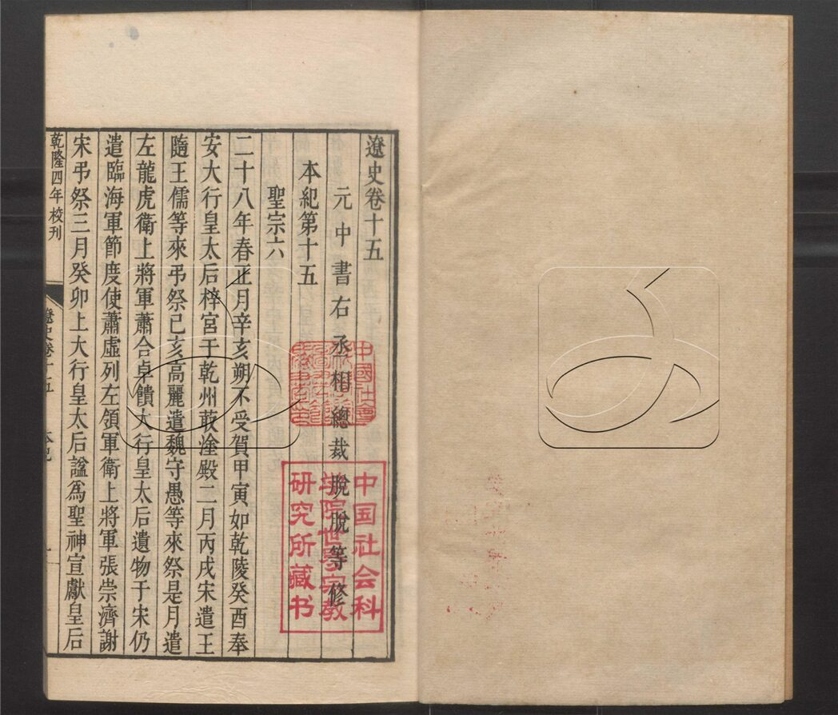 遼史卷十五
元中書右丞相總裁脫脫等修
本紀第十五
聖宗六
二十八年春正月辛亥朔不受賀甲寅如乾陵癸酉奉
安大行皇太后梓宮于乾州菆塗殿二月丙戌宋遣王
隨王儒等來弔祭己亥高麗遣魏守愚等來祭是月遣
左龍虎衛上將軍蕭合卓饋大行皇太后遺物于宋仍
遣臨海軍節度使蕭虛列左領軍衛上將軍張崇濟謝
宋弔祭三月癸卯上大行皇太后諡為聖神宣獻皇后
乾隆四年校刊
遼史卷十五 本紀 一
中國社會
中国社会科
学院世界宗教
研究所藏书